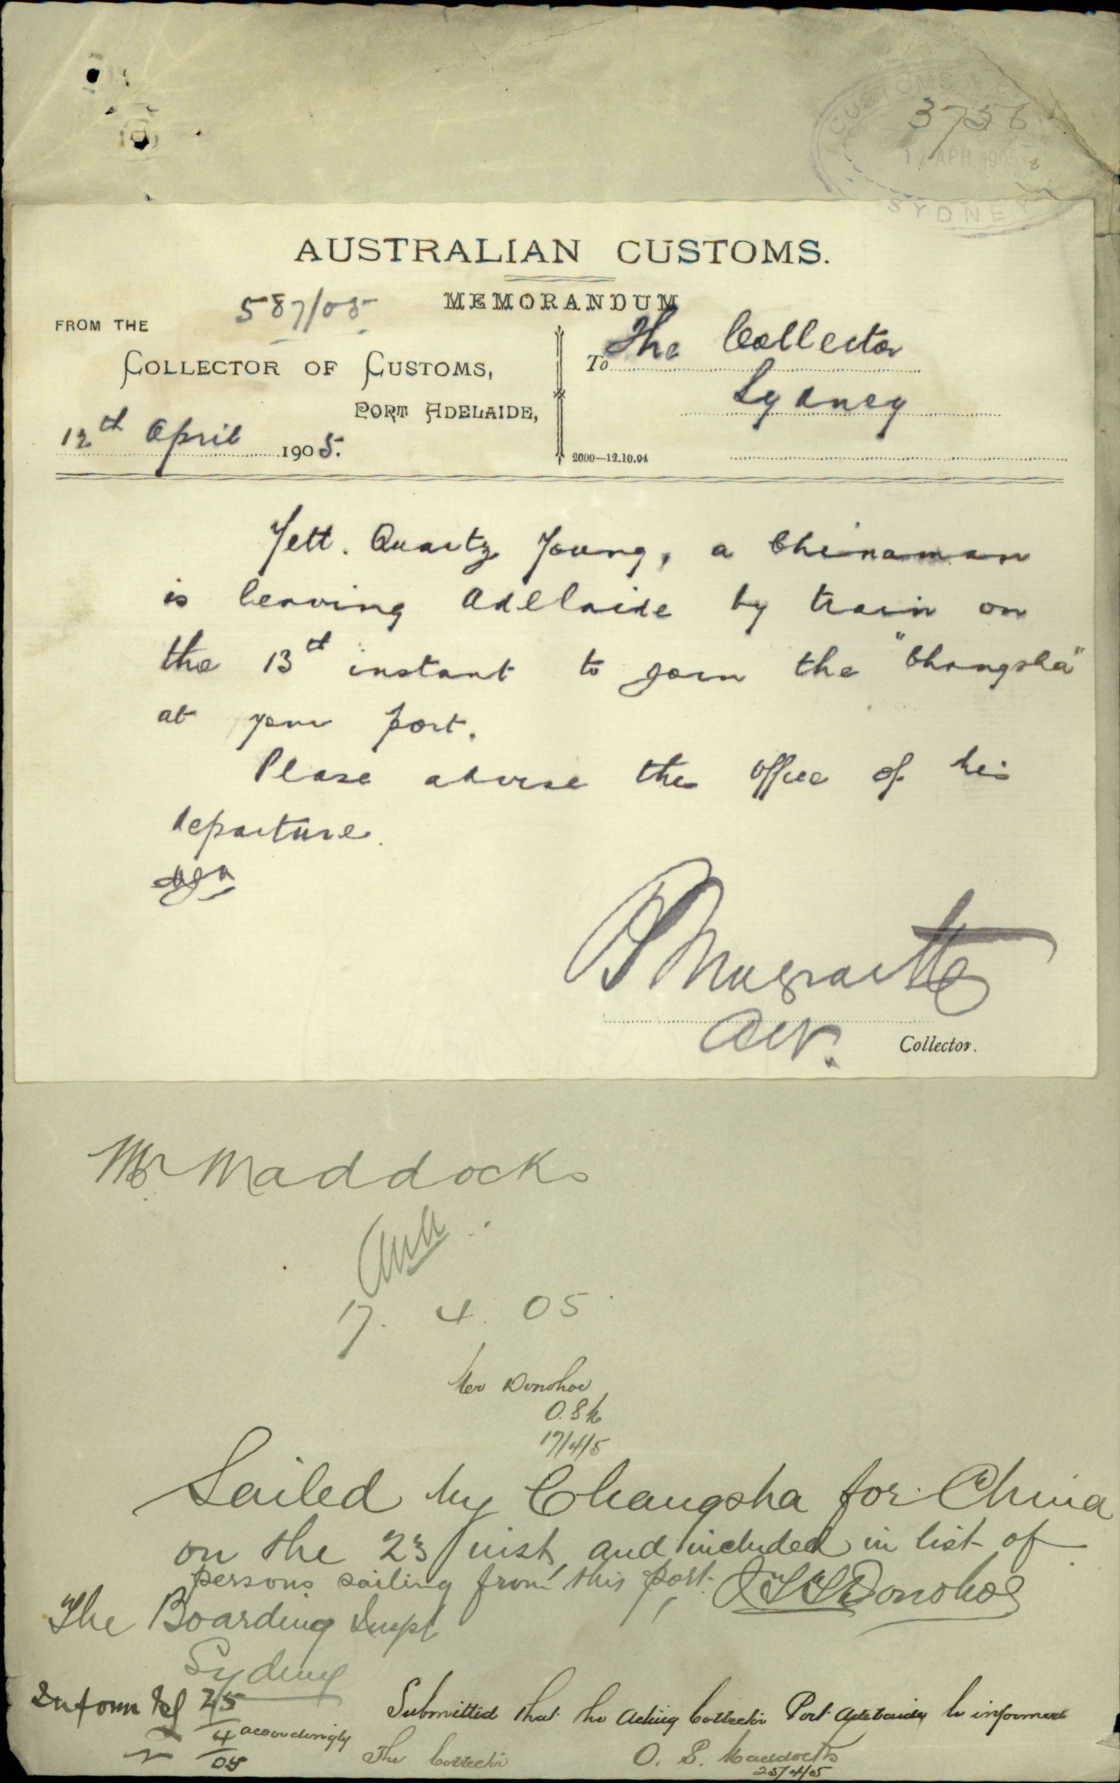 CUSTOMS
3756
17 APR 1905
SYDNEY
AUSTRALIAN CUSTOMS.
587/05
MEMORANDUM
FROM THE
COLLECTOR OF CUSTOMS,
PORT ADELAIDE,
12th April 1905.
To The Collector
Sydney
2000—12.10.04
Yett. Quartz Young, a Chinaman
is leaving Adelaide by train on
the 13th instant to join the "Changsha"
at your port.
Please advise this office of his
departure.
Collector.
Mr Maddocks
17. 4. 05
Mr Donohoe
O.S.M
17/4/5
Sailed by Changsha for China
on the 23 inst, and included in list of
persons sailing from this port. Donohoe
The Boarding Inspr
Sydney
Inform
25/4/05 accordingly
Submitted that the Acting Collector Port Adelaide be informed
The Collector
O. S. Maddocks
25/4/5